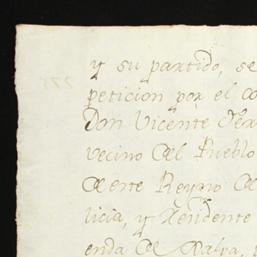 y su partido, se
peticion por el co
Don Vicente Fer
vecino del Pueblo
de este Reyno de
licia, y Tendente
enda de Xalpa,